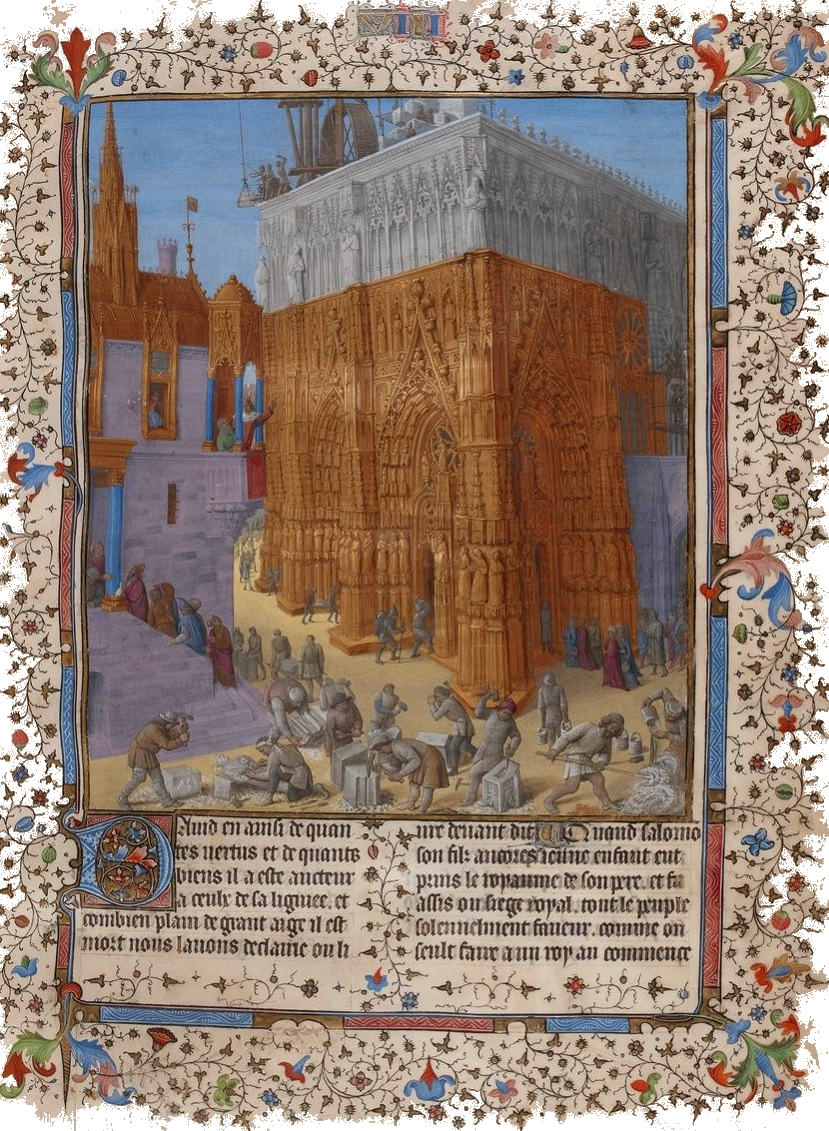 VIII
Dauid en ainsi de quan
tes uertus et de quants
biens il a este aucteur
a ceulx de sa lignee. et
combien plain de grant aige il est
mort nous lauons declaire ou li
ure deuant dit Quand salomo
son filz encores ieune enfant eut
prins le royaume de son pere. et fu
assis ou siege royal. tout le peuple
solennelment faueur. comme on
seult faire a un roy au commence